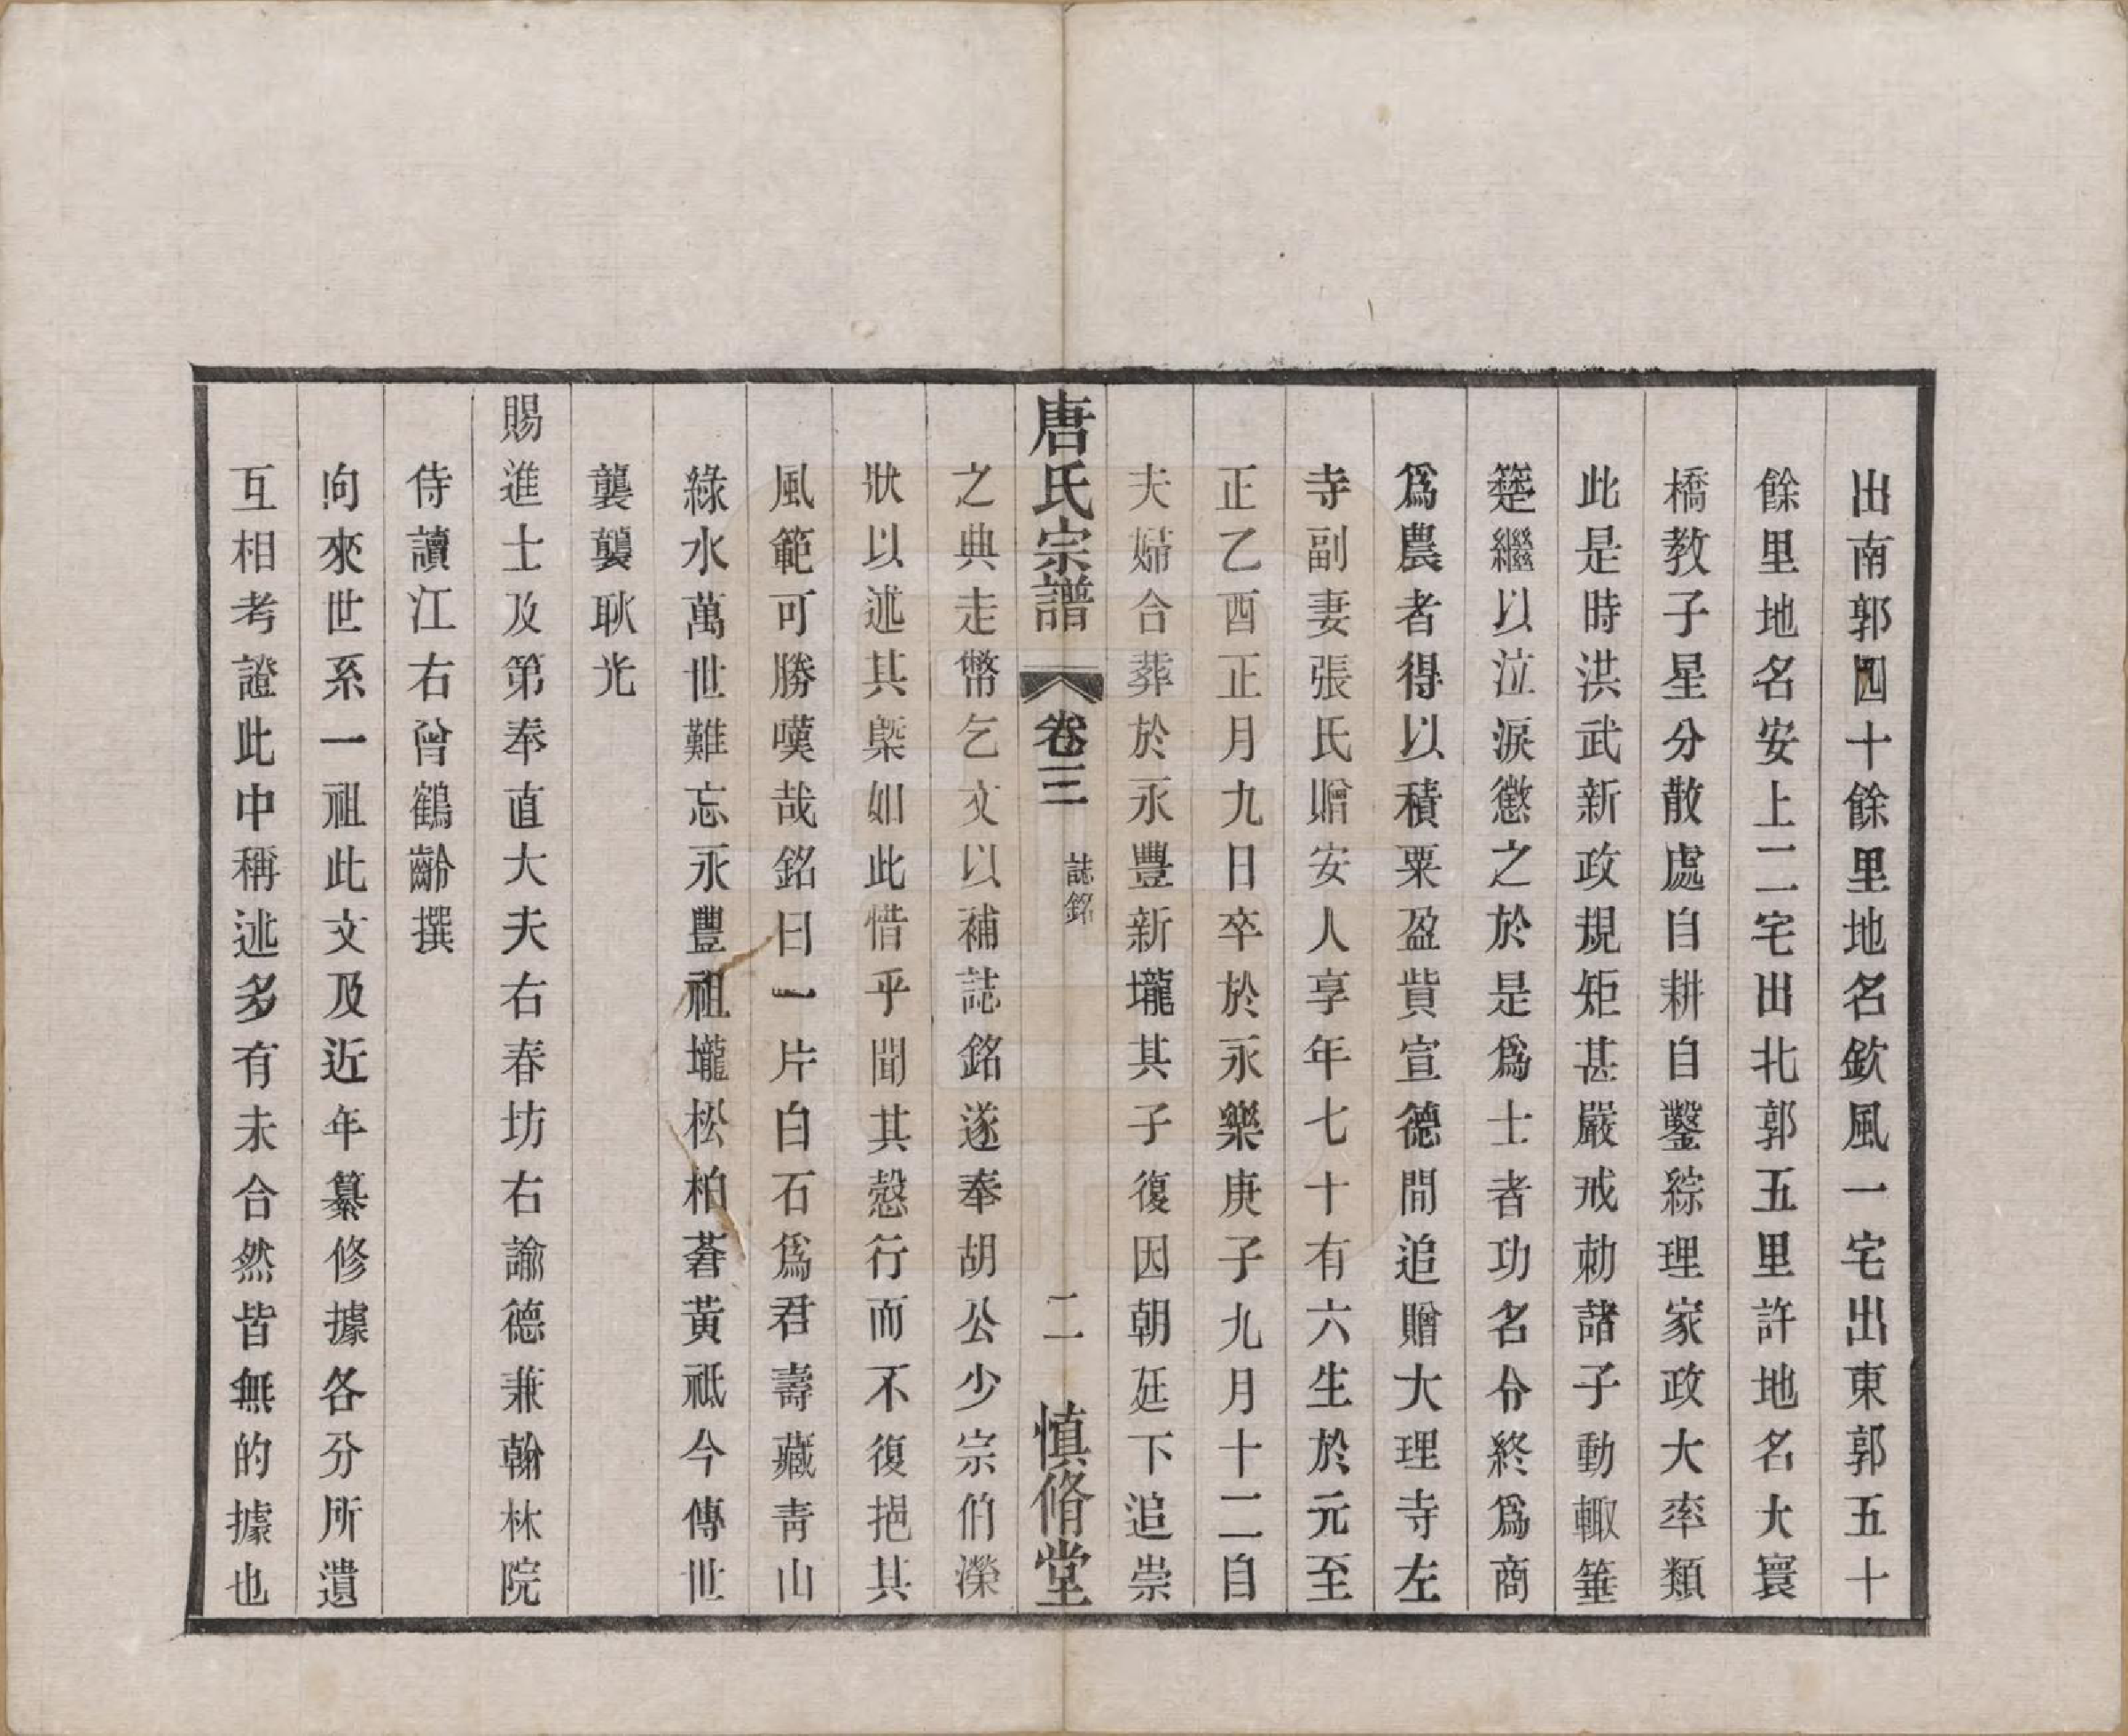 出南郭四十餘里地名欽風一宅出東郭五十
餘里地名安上二宅出北郭五里許地名大寰
橋教子星分散處自耕自鑿綜理家政大率類
此是時洪武新政規矩甚嚴戒勑諸子動輙箠
楚繼以泣淚懲之於是爲士者功名令終爲商
爲農者得以積粟盈貲宣德間追贈大理寺左
寺副妻張氏贈安人享年七十有六生於元至
正乙酉正月九日卒於永樂庚子九月十二自
夫婦合葬於永豐新壠其子復因朝廷下追崇
唐氏宗譜 卷三 誌銘 二 慎脩堂
之典走幣乞文以補誌銘遂奉胡公少宗伯濚
狀以述其槩如此惜乎聞其愨行而不復挹其
風範可勝嘆哉銘曰一片白石爲君壽藏靑山
綠水萬世難忘永豐祖壠松柏蒼黃祇今傳世
襲襲耿光
賜進士及第奉直大夫右春坊右諭德兼翰林院
侍讀江右曾鶴齡撰
向來世系一祖此文及近年纂修據各分所遺
互相考證此中稱述多有未合然皆無的據也